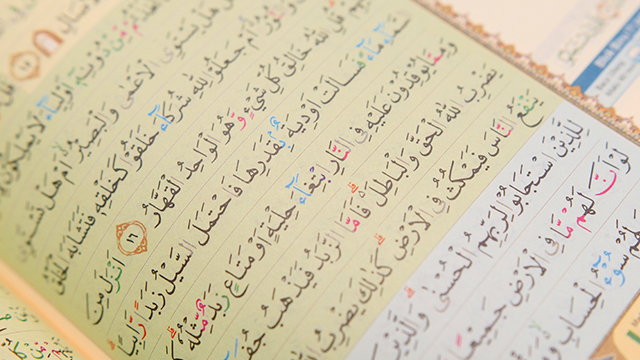 مِنْ دُونِهٖٓ اَوْلِيَٓاءَ لَا يَمْلِكُونَ
هَلْ يَسْتَوِي الْاَعْمٰى وَالْبَصِيرُ اَمْ هَلْ تَسْتَوِي
وَالنُّورُ اَمْ جَعَلُوا لِلّٰهِ شُرَكَٓاءَ خَلَقُوا كَخَلْقِهٖ فَتَشَابَهَ الْخَلْقُ
قُلِ اللّٰهُ خَالِقُ كُلِّ شَيْءٍ وَهُوَ الْوَاحِدُ الْقَهَّارُ ١٦ اَنْزَلَ مِنَ
مَٓاءً فَسَالَتْ اَوْدِيَةٌ بِقَدَرِهَا فَاحْتَمَلَ السَّيْلُ زَبَدًا رَابِيًا
وَمِمَّا يُوقِدُونَ عَلَيْهِ فِي النَّارِ ابْتِغَٓاءَ حِلْيَةٍ اَوْ مَتَاعٍ زَبَدٌ مِثْلُهُ
يَضْرِبُ اللّٰهُ الْحَقَّ وَالْبَاطِلَ فَاَمَّا الزَّبَدُ فَيَذْهَبُ
يَنْفَعُ النَّاسَ فَيَمْكُثُ فِي الْاَرْضِ كَذٰلِكَ يَضْرِبُ
لِلَّذِينَ اسْتَجَابُوا لِرَبِّهِمُ الْحُسْنٰى وَالَّذِينَ
لَوْ اَنَّ لَهُمْ مَا فِي الْاَرْضِ جَمِيعًا
سُٓوءُ الْحِسَابِ